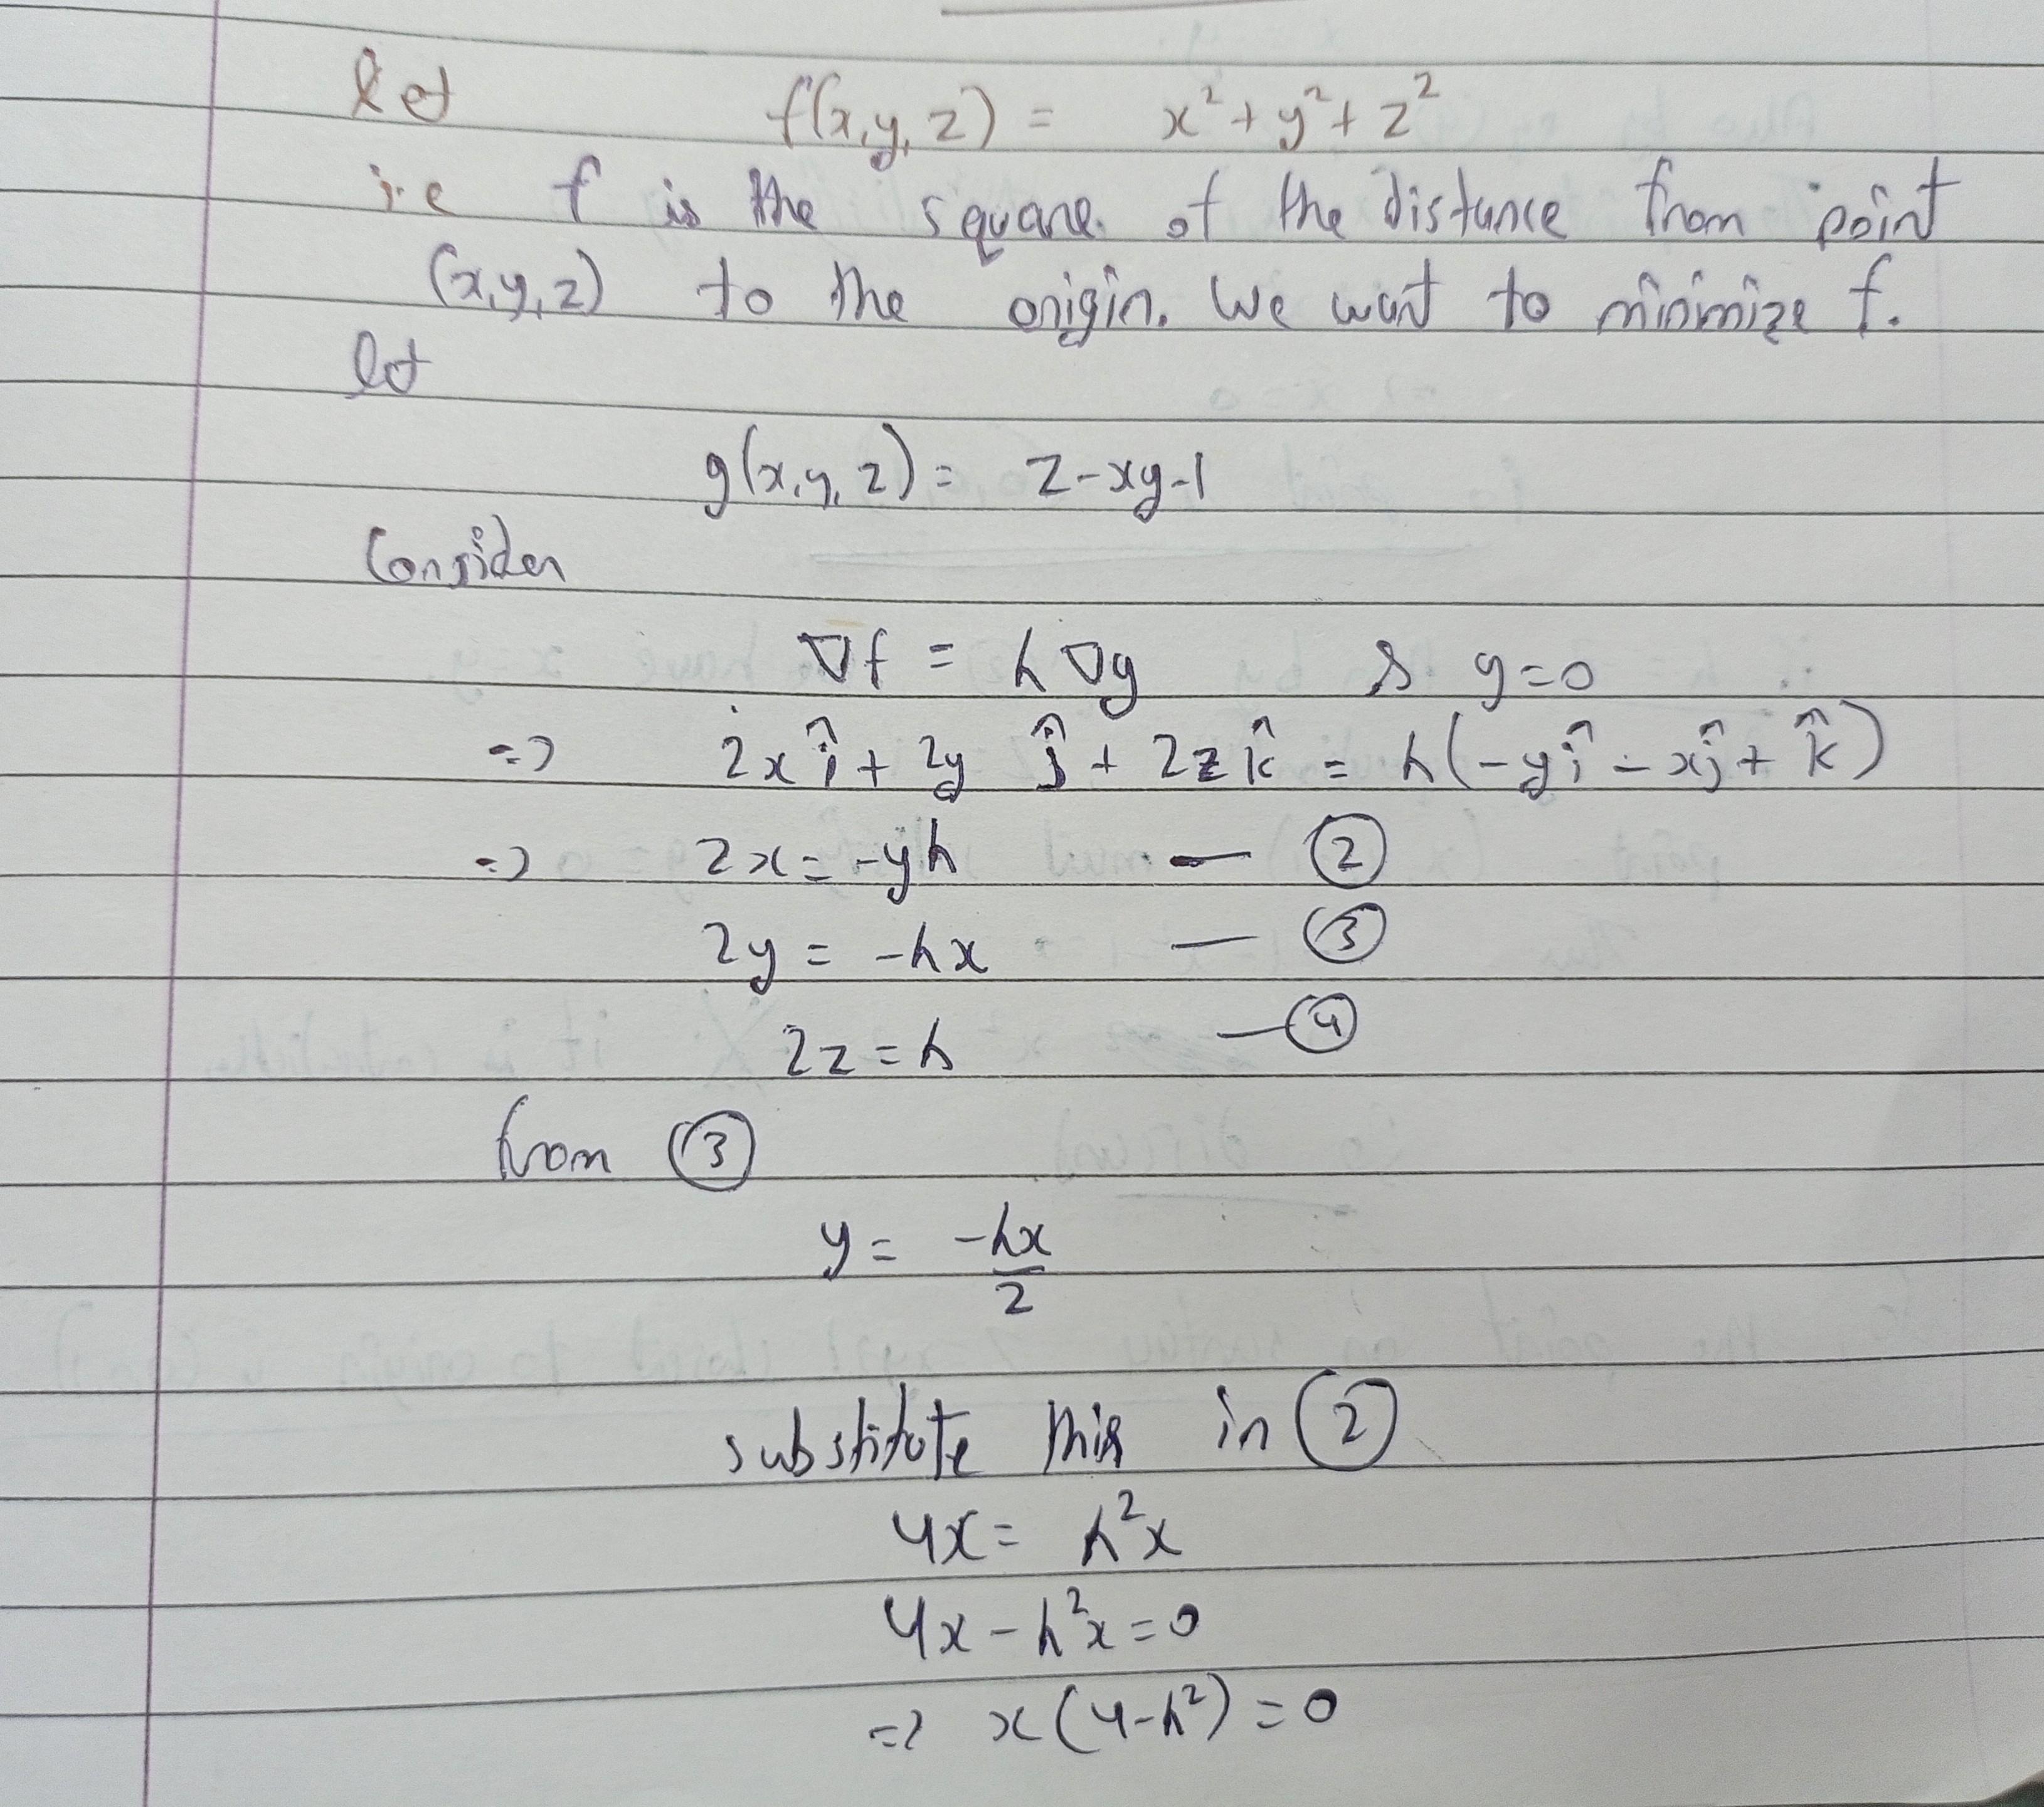 let f(x,y,z) = x² + y² + z²
i.e f is the square of the distance from point
(x,y,z) to the origin. We want to minimize f.
let
g(x,y,z) = z-xy-1
Consider
∇f = λ∇g & g=0
=> 2xî + 2y ĵ + 2zk̂ = λ(-yî - xĵ + k̂)
=> 2x = -yλ — ②
2y = -λx — ③
2z = λ — ④
from ③
y = -λx/2
substitute this in ②
4x = λ²x
4x - λ²x = 0
=> x(4-λ²) = 0